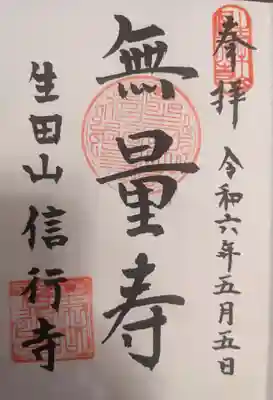 奉拝 令和六年五月五日
無量寿
生田山 信行寺